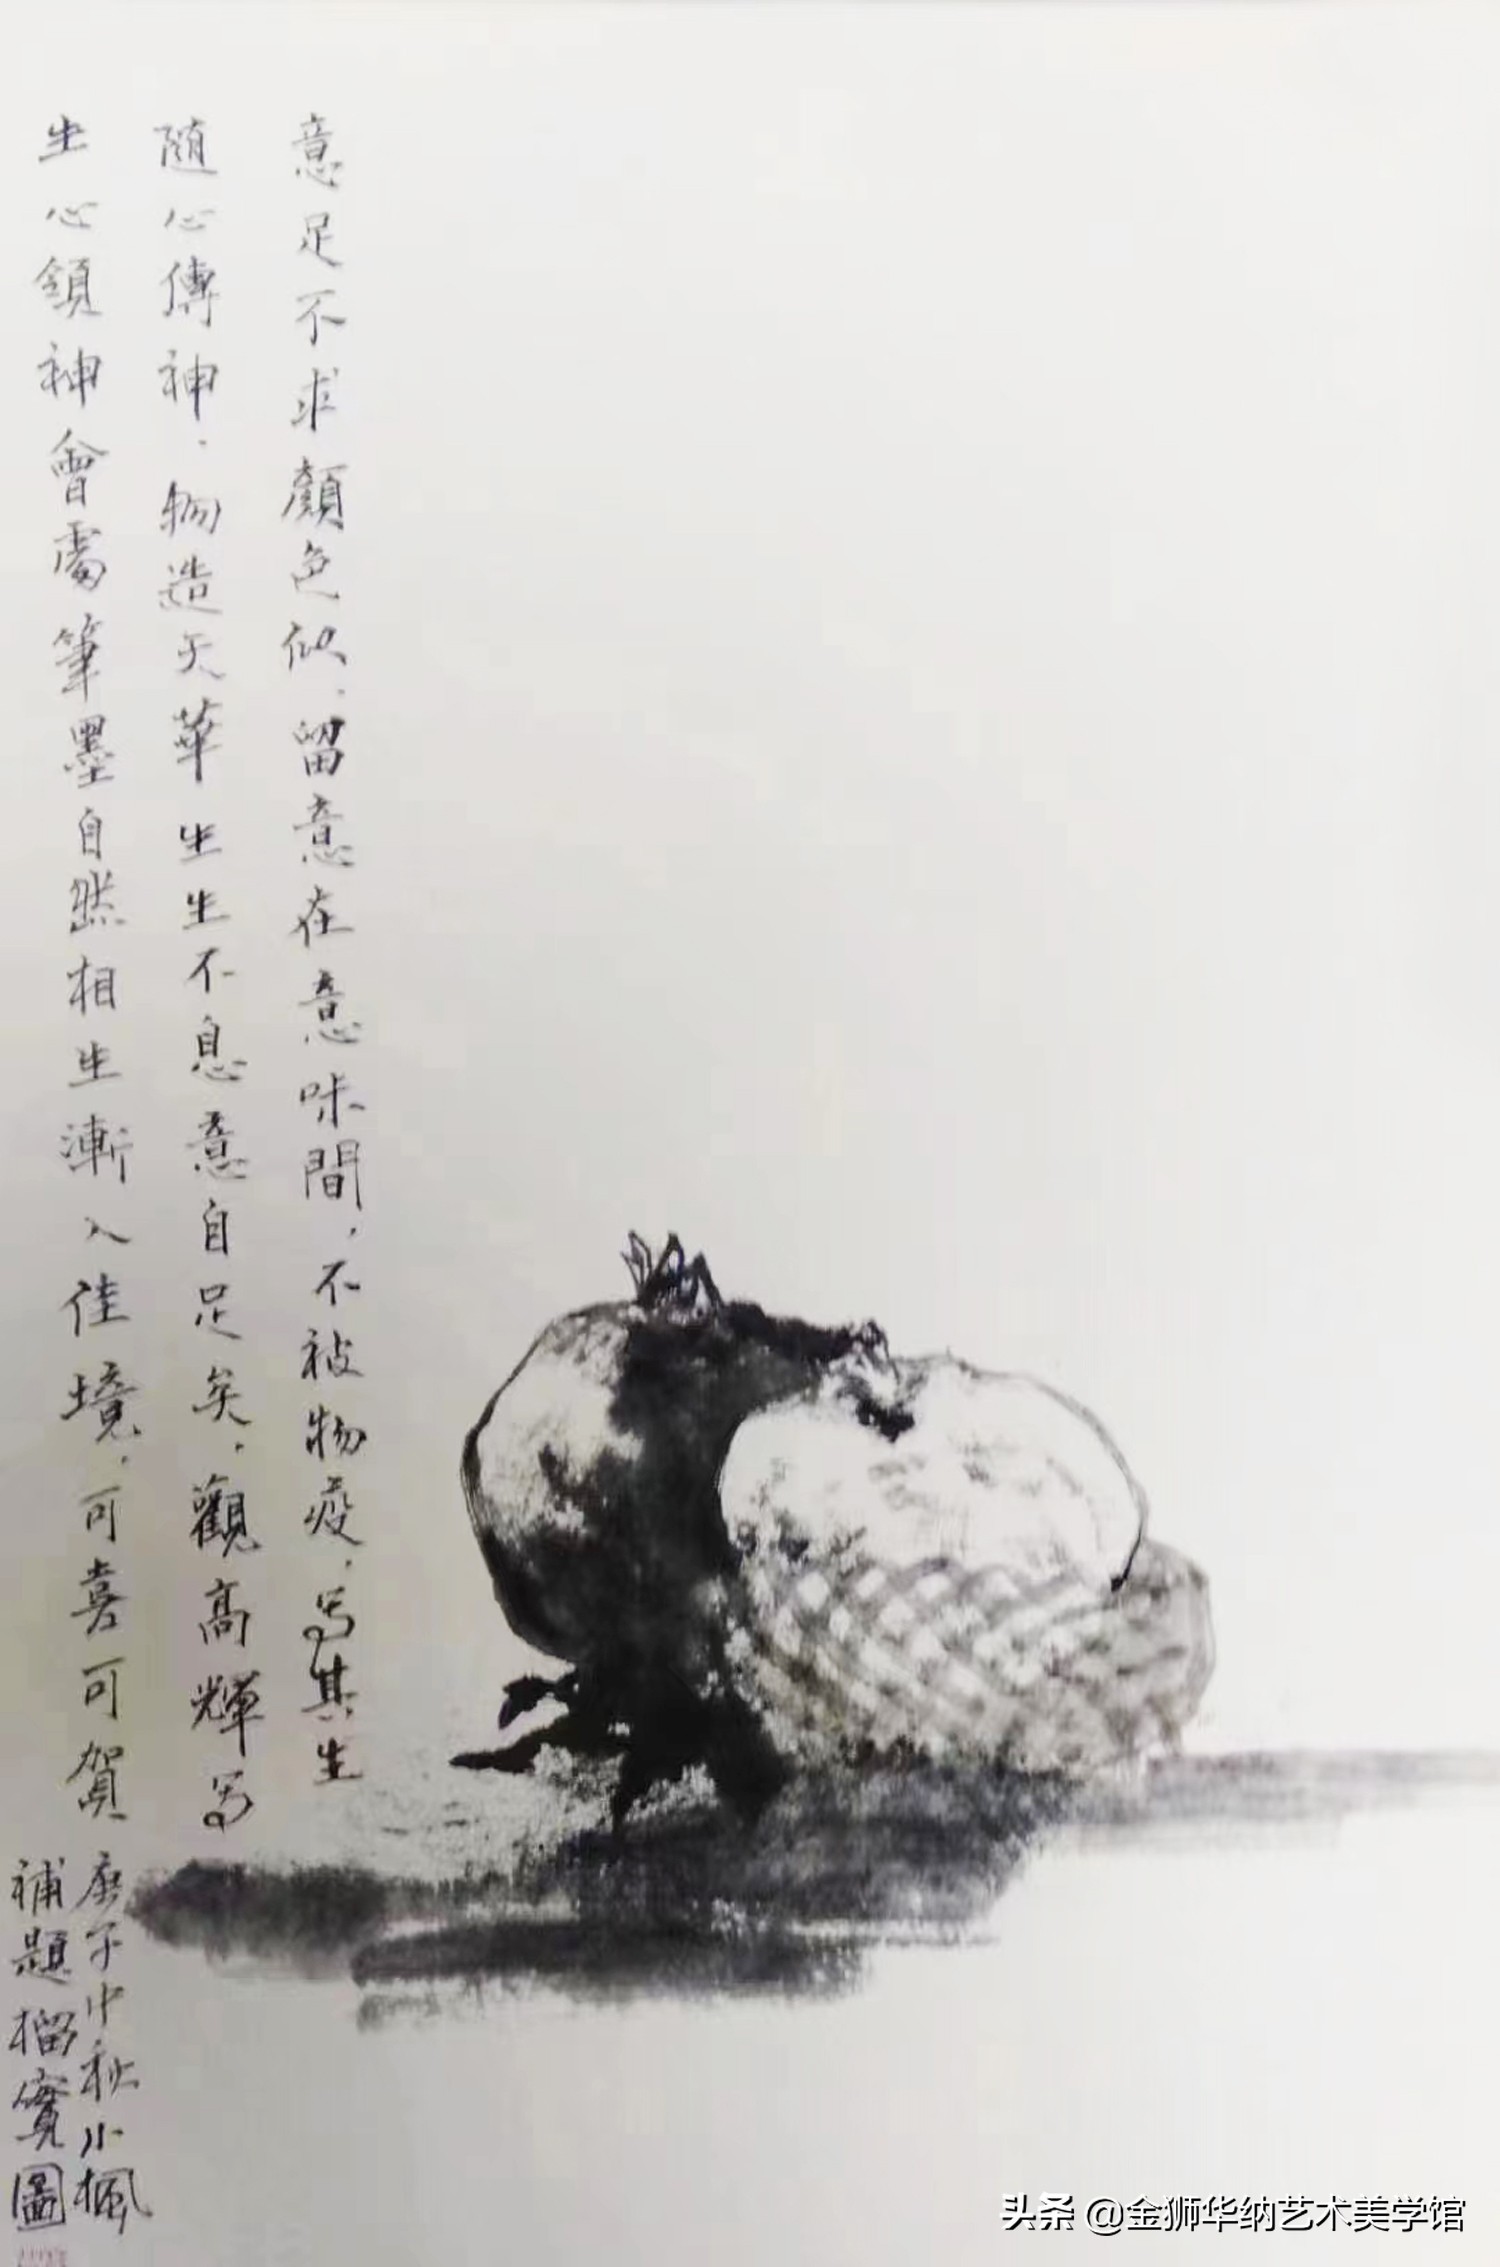 意足不求顏色似，留意在意味間，不被物役，写其生
随心傳神，物造天華生生不息意自足矣，觀高輝写
生心領神會處筆墨自然相生漸入佳境，可喜可賀
庚子中秋小楓
補題榴實圖
头条 @金狮华纳艺术美学馆